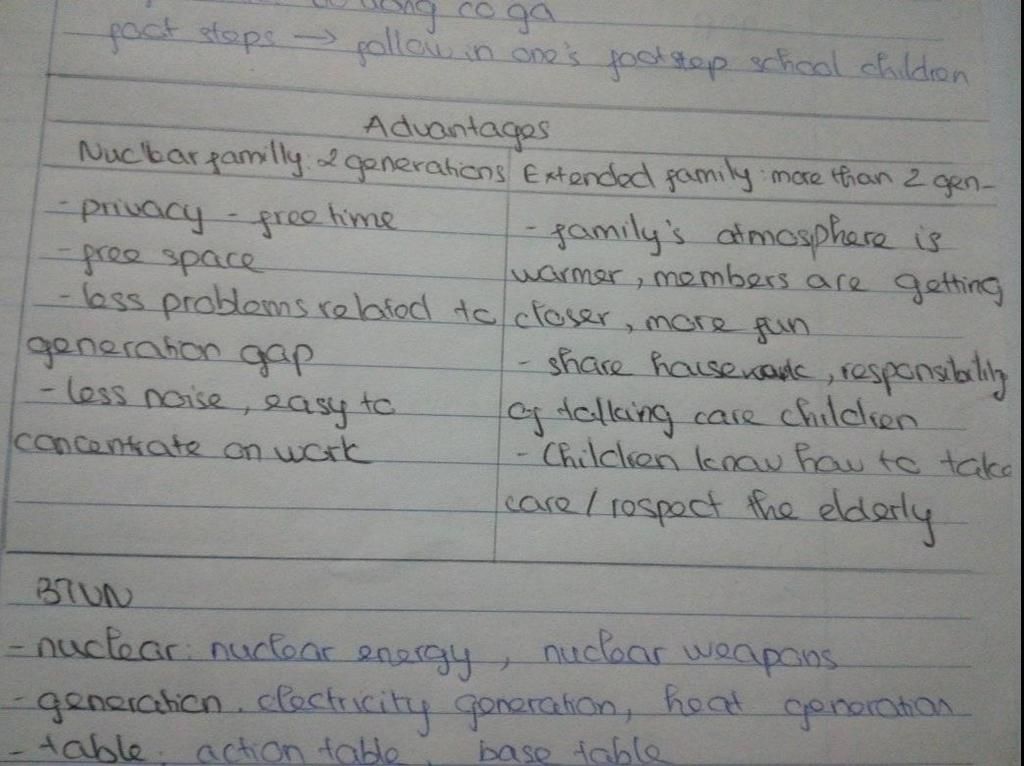 coga
foot steps → follow in one's footstep school children
Advantages
Nuclear familly: 2 generations
- privacy - free time
- free space
- less problems related to
generation gap
- less noise, easy to
concentrate on work
Extended family: more than 2 gen-
- family's atmosphere is
warmer, members are getting
closer, more fun
- share housework, responsibility
of talking care children
- Children know how to take
care / respect the elderly
BTVN
- nuclear: nuclear energy, nuclear weapons
- generation. electricity generation, heat generation
- table: action table, base table